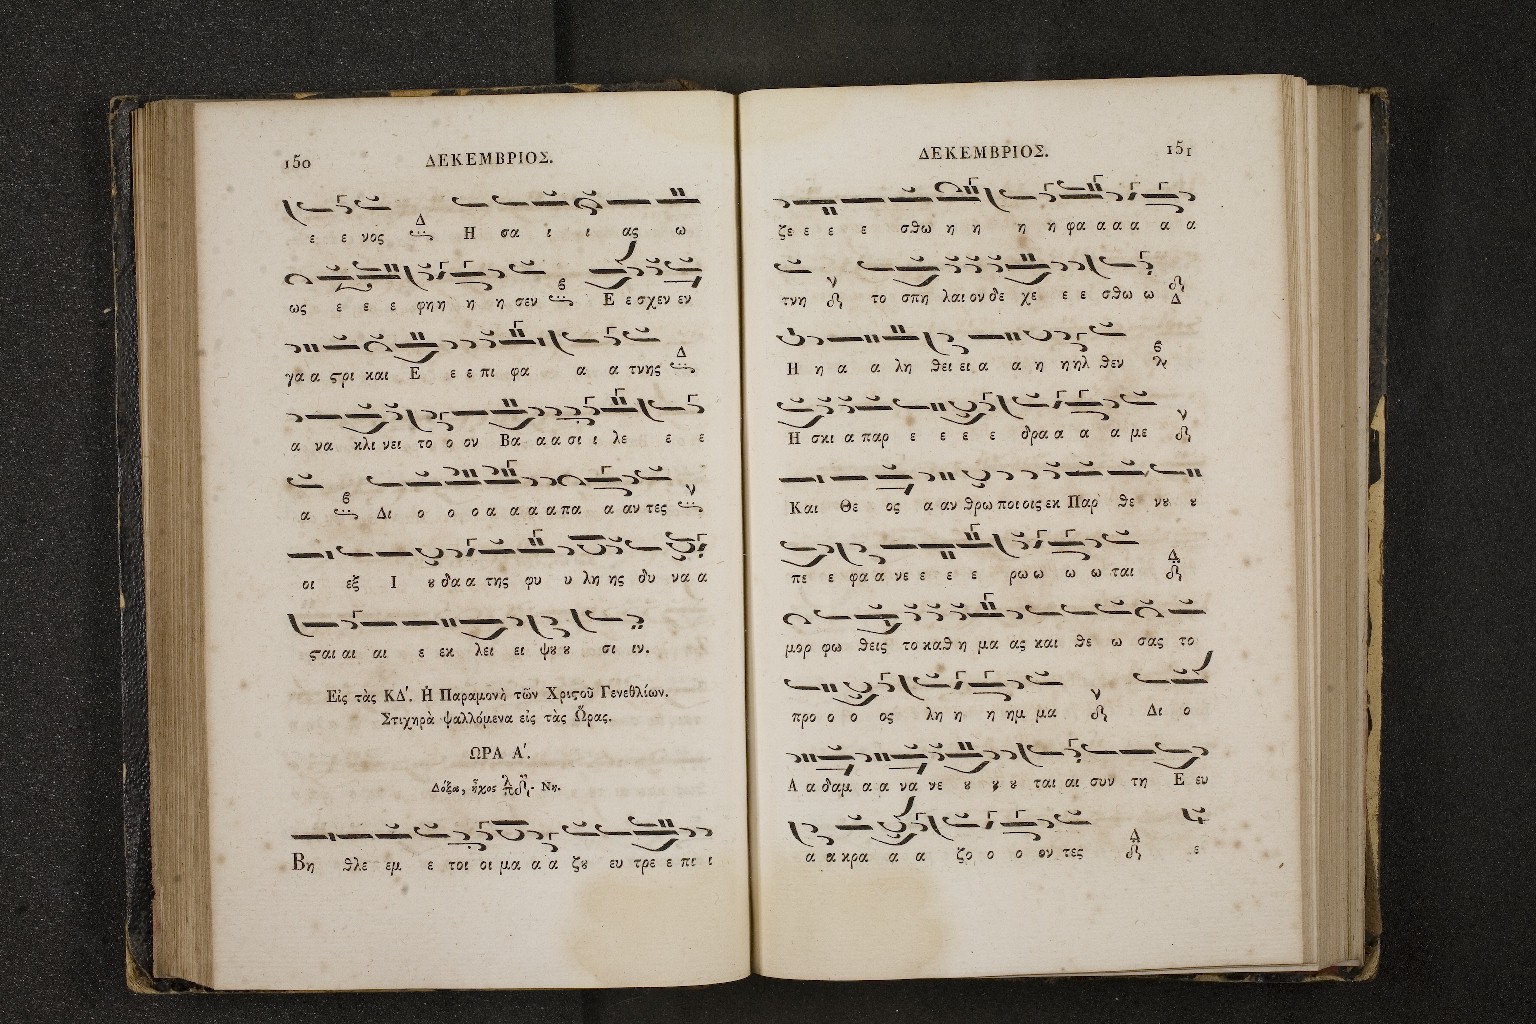 150 ΔΕΚΕΜΒΡΙΟΣ.
ε ε νος Η σα ι ι ας ω
ως ε ε ε φη η η η σεν Ε ε σχεν εν
γα α ϛρι και Ε ε ε πι φα α α τνης
α να κλι νει το ο ον Βα α α σι ι λε ε ε
α Δι ο ο ο α α α α πα α αν τες
οι εξ Ι ȣ δα α της φυ υ λη ης δυ να α
ϛαι αι αι ε εκ λει ει ψȣ ȣ σι ιν.
Εἰς τὰς ΚΔ'. Ἡ Παραμονὴ τῶν Χριϛοῦ Γενεθλίων.
Στιχηρὰ ψαλλόμενα εἰς τὰς Ὥρας.
ΩΡΑ Α'.
Δόξα, ἦχος Νη.
Βη θλε εμ ε τοι οι μα α α ζȣ ευ τρε ε πι ι
ΔΕΚΕΜΒΡΙΟΣ. 151
ζε ε ε ε ε σθω η η η η φα α α α α α
τνη το σπη λαι ον δε χε ε ε σθω ω
Η η α α λη θει ει α α η η ηλ θεν
Η σκι α παρ ε ε ε ε δρα α α α με
Και Θε ος α αν θρω ποι οις εκ Παρ θε νȣ ȣ
πε ε φα α νε ε ε ε ρω ω ω ω ται
μορ φω θεις το κα θη μα ας και θε ω σας το
προ ο ο ος λη η η ημ μα Δι ο
Α α δαμ α α να νε ȣ ȣ ȣ ται αι συν τη Ε ευ
α α κρα α α ζο ο ο ον τες ε